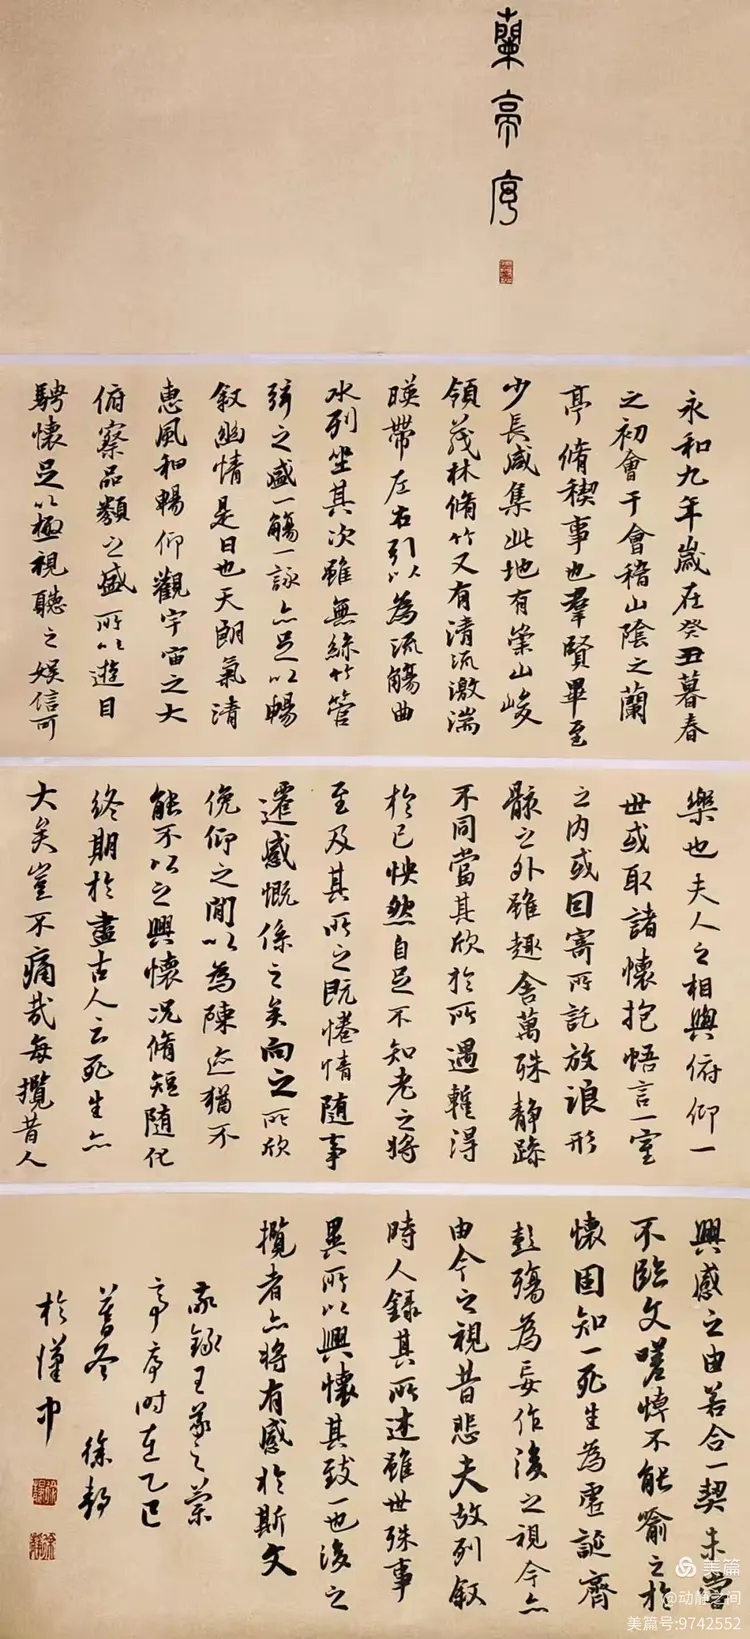 蘭亭序
永和九年歲在癸丑暮春
之初會于會稽山陰之蘭
亭脩稧事也羣賢畢至
少長咸集此地有崇山峻
領茂林脩竹又有清流激湍
暎帶左右引以為流觴曲
水列坐其次雖無絲竹管
弦之盛一觴一詠亦足以暢
敘幽情是日也天朗氣清
惠風和暢仰觀宇宙之大
俯察品類之盛所以遊目
騁懷足以極視聽之娛信可
樂也夫人之相與俯仰一
世或取諸懷抱悟言一室
之內或因寄所託放浪形
骸之外雖趣舍萬殊靜躁
不同當其欣於所遇蹔得
於己怏然自足不知老之將
至及其所之既惓情隨事
遷感慨係之矣向之所欣
俛仰之閒以為陳迹猶不
能不以之興懷況脩短隨化
終期於盡古人云死生亦
大矣豈不痛哉每攬昔人
興感之由若合一契未嘗
不臨文嗟悼不能喻之於
懷固知一死生為虛誕齊
彭殤為妄作後之視今亦
由今之視昔悲夫故列敘
時人錄其所述雖世殊事
異所以興懷其致一也後之
攬者亦將有感於斯文
錄王羲之蘭
亭序時在乙巳
初冬 徐靜
於漢中
美篇
@动静之间
美篇号:9742552